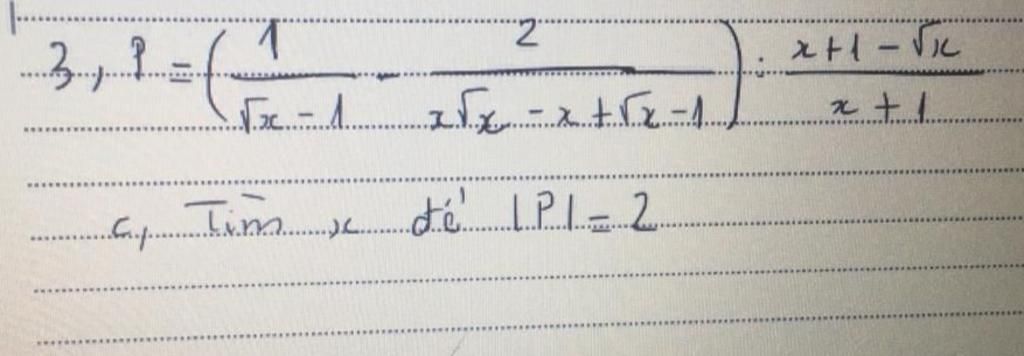 3, P = ( 1/(√x - 1) - 2/(x√x - x + √x - 1) ) : (x + 1 - √x)/(x + 1)
c, Tìm x để |P| = 2